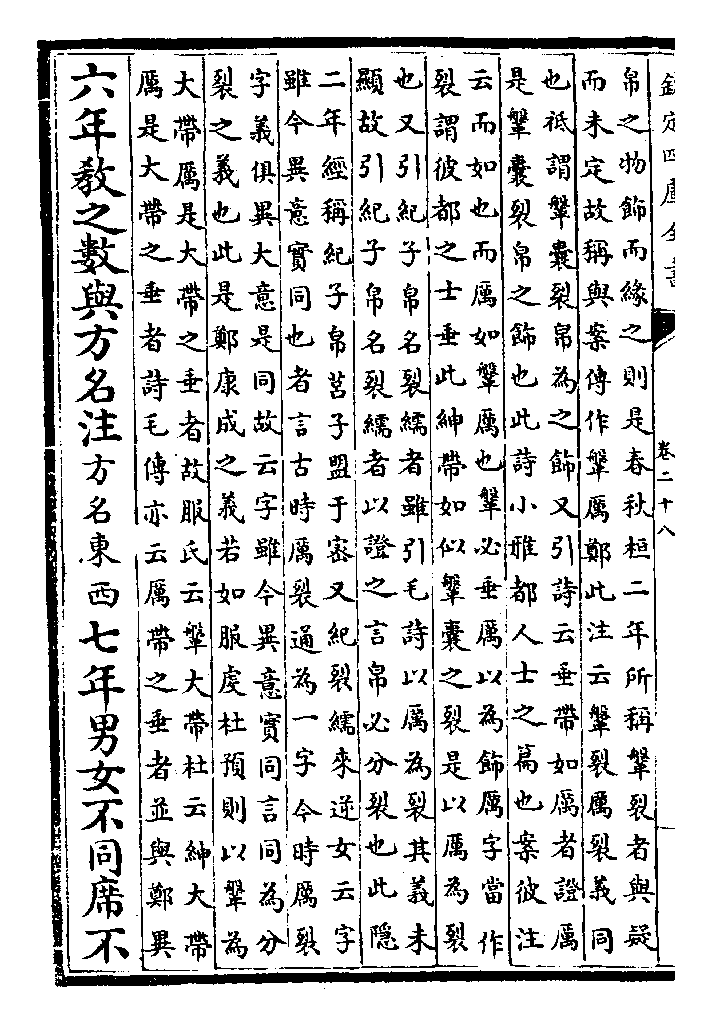 欽定四庫全書
卷二十八
帛之物飾而緣之則是春秋桓二年所稱鞶裂者與疑
而未定故稱與案傳作鞶厲鄭此注云鞶裂厲裂義同
也祗謂鞶囊裂帛為之飾又引詩云垂帶如厲者證厲
是鞶囊裂帛之飾也此詩小雅都人士之篇也案彼注
云而如也而厲如鞶厲也鞶必垂厲以為飾厲字當作
裂謂彼都之士垂此紳帶如似鞶囊之裂是以厲為裂
也又引紀子帛名裂繻者雖引毛詩以厲為裂其義未
顯故引紀子帛名裂繻者以證之言帛必分裂也此隱
二年經稱紀子帛莒子盟于密又紀裂繻來逆女云字
雖今異意實同也者言古時厲裂通為一字今時厲裂
字義俱異大意是同故云字雖今異意實同言同為分
裂之義也此是鄭康成之義若如服虔杜預則以鞶為
大帶厲是大帶之垂者故服氏云鞶大帶杜云紳大帶
厲是大帶之垂者詩毛傳亦云厲帶之垂者並與鄭異
六年教之數與方名注方名東西七年男女不同席不